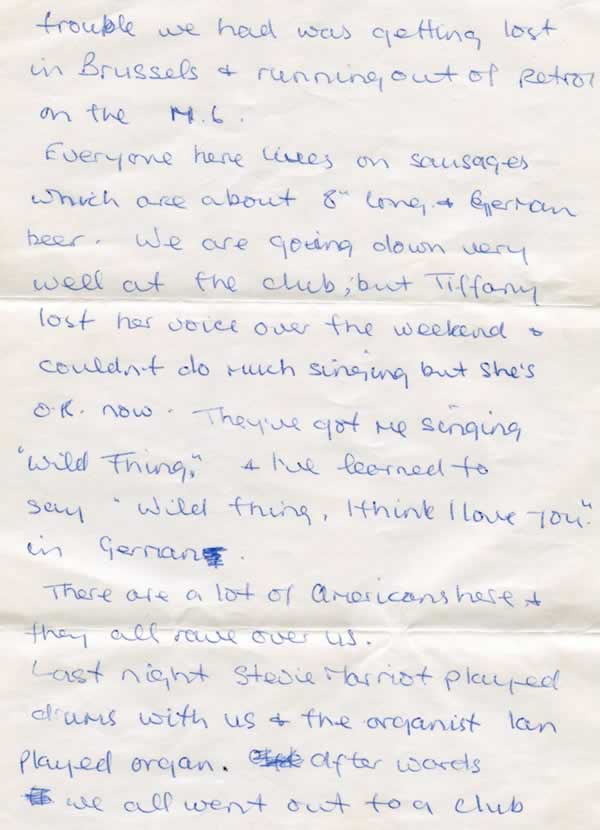 trouble we had was getting lost
in Brussels & running out of petrol
on the M.6.
Everyone here lives on sausages
which are about 8" long & German
beer. We are going down very
well at the club; but Tiffany
lost her voice over the weekend &
couldn't do much singing but she's
O.K. now. They've got me singing
"Wild Thing," & I've learned to
say "Wild thing, I think I love you"
in German.
There are a lot of Americans here &
they all rave over us.
Last night Stevie Marriot played
drums with us & the organist Ian
played organ. after wards
we all went out to a club